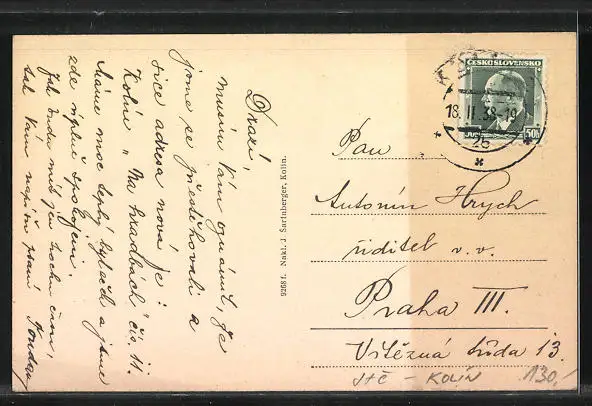 Drazí,
musím Vám oznámit, že
jsme se přestěhovali a
sice adresa nová je:
Kolín „Na hradbách" čís. 11.
Máme moc teplý byteček a jsme
zde úplně spokojeni.
Jak budu míti jen trochu času,
tak Vám napíšu psaní
9268 f. Nakl. J. Šarlnberger, Kolín.
ČESKOSLOVENSKO
50h
18. II. 38 - 19
2b
Pan
Antonín Hrych
řiditel v. v.
Praha III.
Vítězná třída 13.
JHČ - KOLÍN
130,-